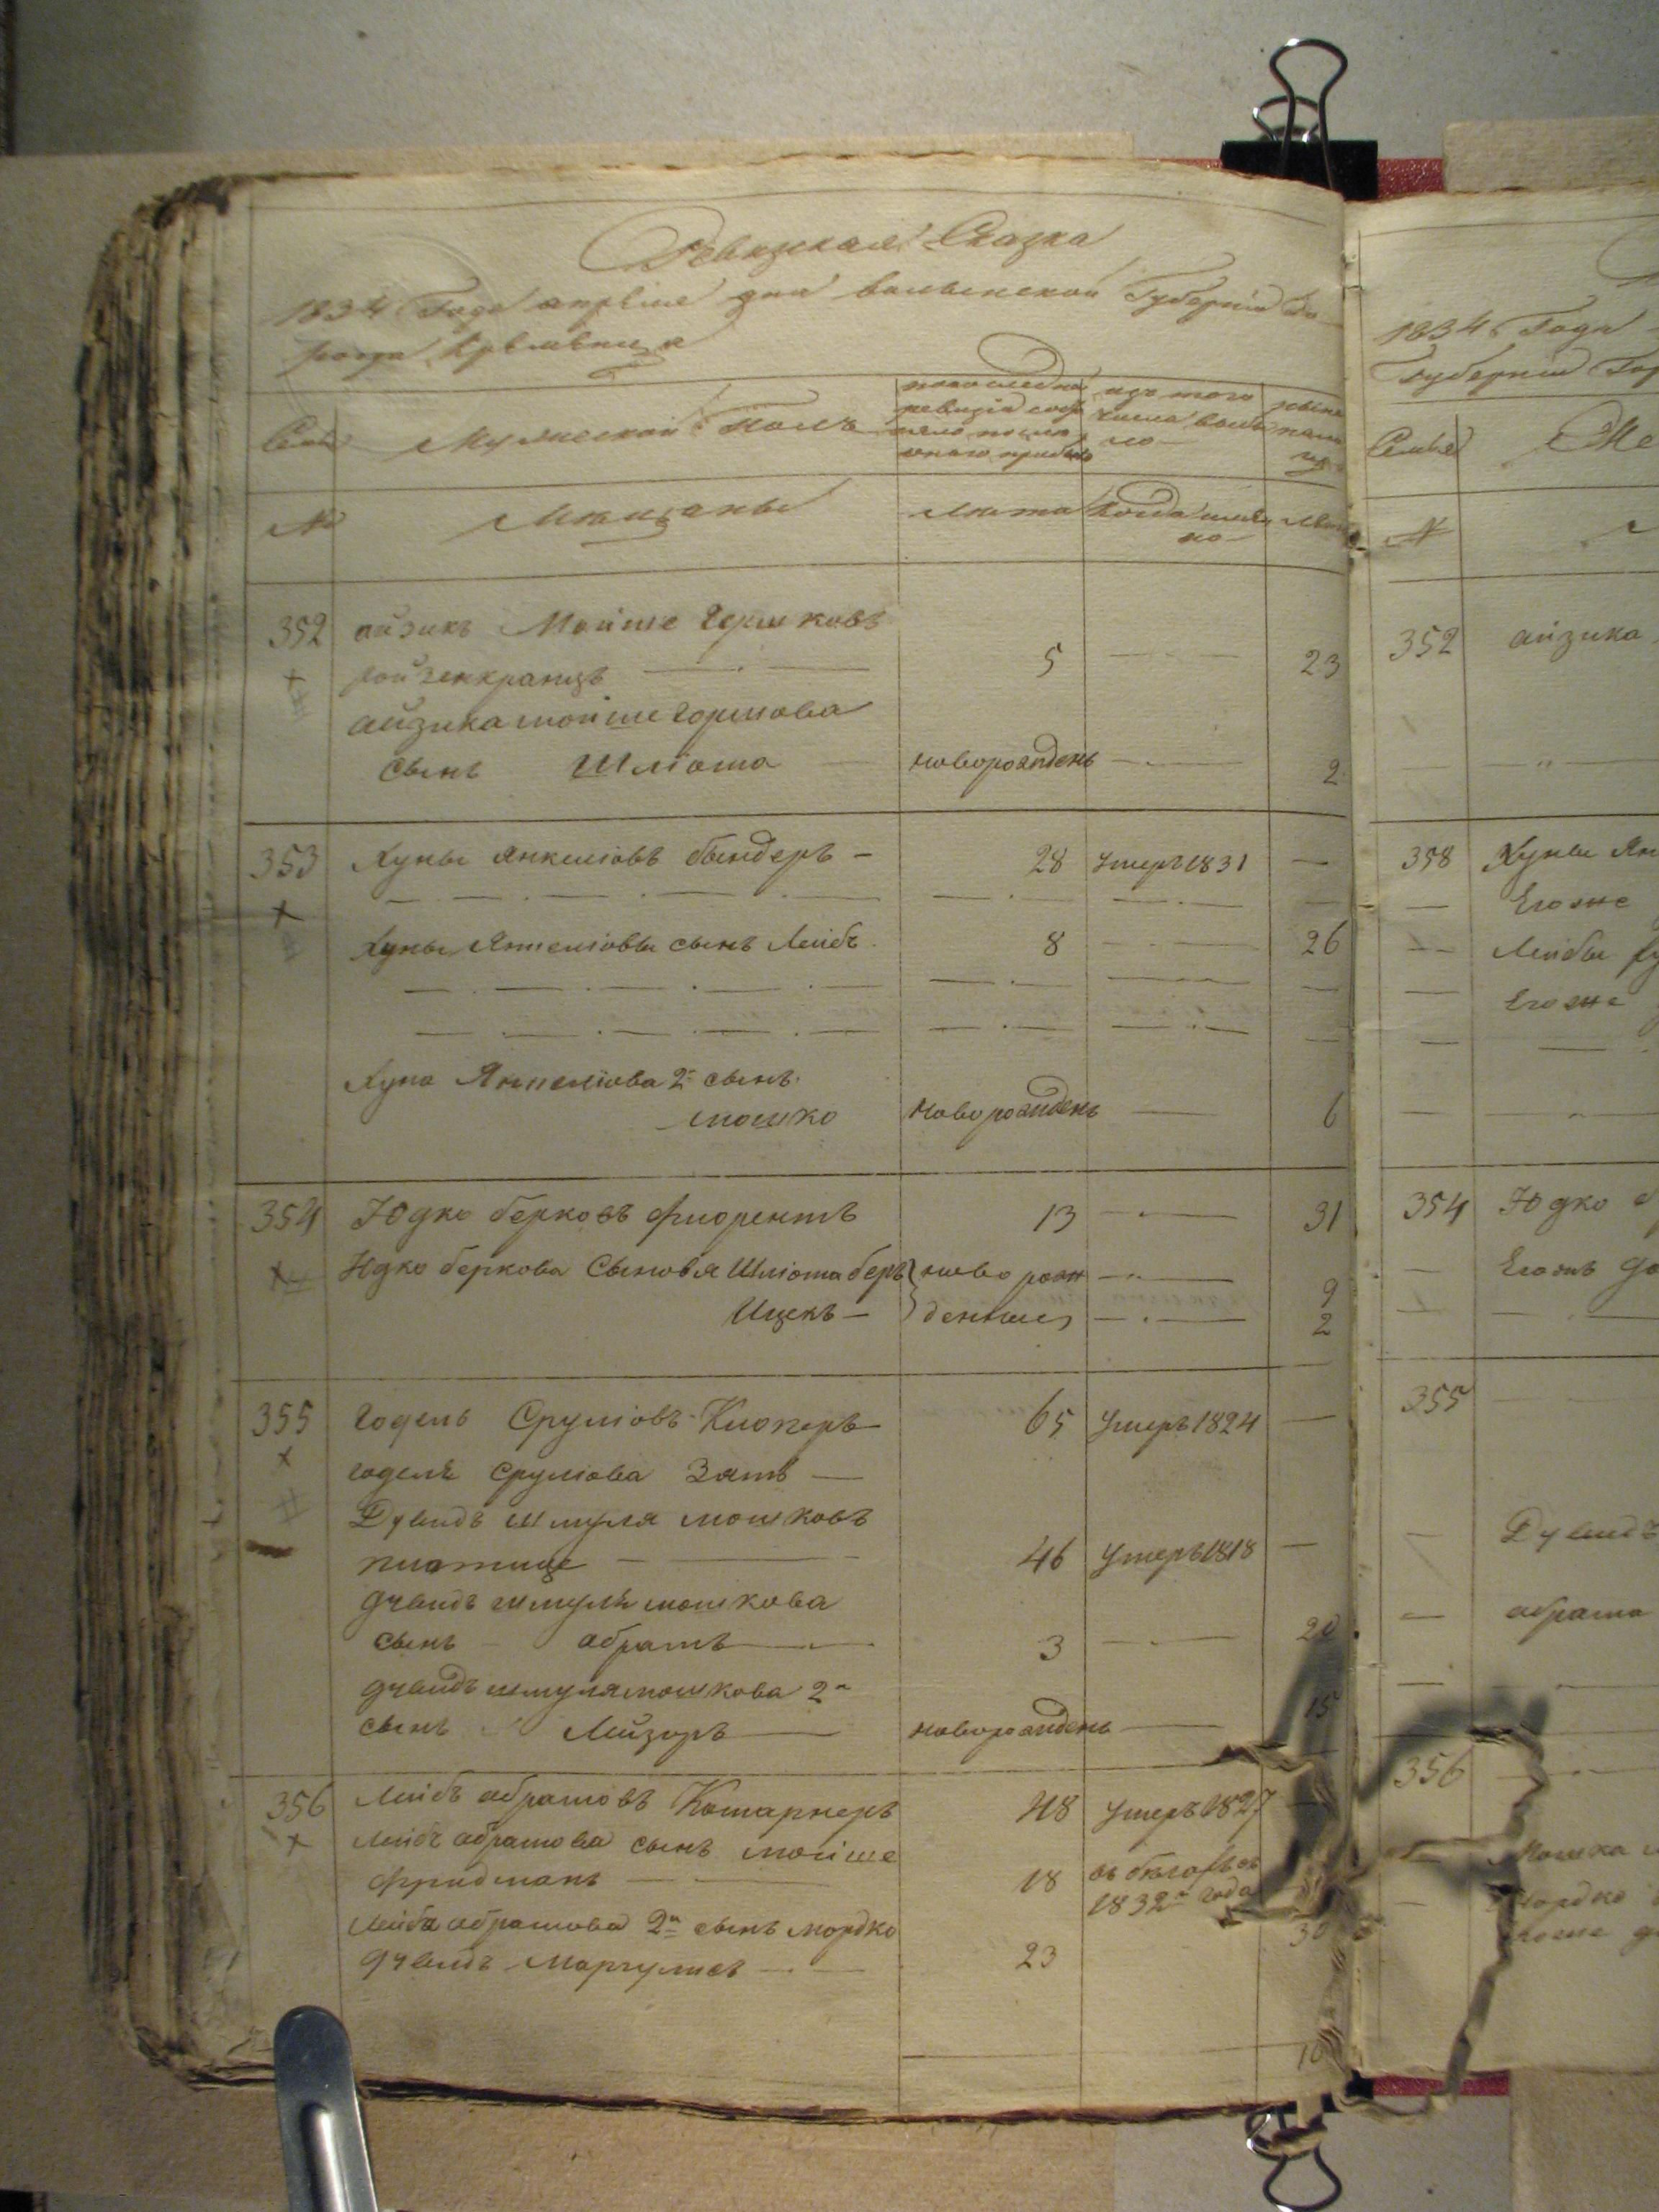 Ревизская Сказка
1834 Года апреля дня волынской Губернии Го
рода Кременца
Семьи
Мужеской Полъ
изъ того
числа выбы
ло
ныне
на ли
цо
№
Мещаны
Лета
Когда имен
но
Лета
352
айзикъ Мойше Гершковъ
ройзенкранцъ
5
23
айзика мойше Горшова
сынъ Шліома
новорожденъ
2
353
Хуны Янкеліовъ бындеръ
28
умеръ 1831
Хуны Янкеліовы сынъ Лейбъ
8
26
Хуна Янкеліова 2й сынъ
мошко
новорожденъ
6
354
Юдко берковъ флорентъ
13
31
Юдко беркова Сыновя Шліома беръ
новорож
9
Ицекъ
денные
2
355
годель Сруліовъ Клоперъ
65
умеръ 1824
годеля Сруліова Зять
Дувидъ шмуля мошковъ
46
умеръ 1818
дувидъ шмуля мошкова
сынъ абрамъ
3
20
дувидъ шмуля мошкова 2й
сынъ Лейзоръ
новорожденъ
15
356
Лейбъ абрамовъ
48
умеръ 1827
Лейбъ абрамова сынъ мойше
фридманъ
18
въ бегахъ съ
1832го года
Лейба абрамова 2й сынъ мордко
30
дувидъ Маргулисъ
23
10
1834 Года
Губернии Гор
Семья
Же
№
352
айзика
353
Хуны Ян
Егоже
Лейбы
Егоже
354
Юдко
Егожъ до
355
Дувидъ
абрама
356
Мошка
Мордко